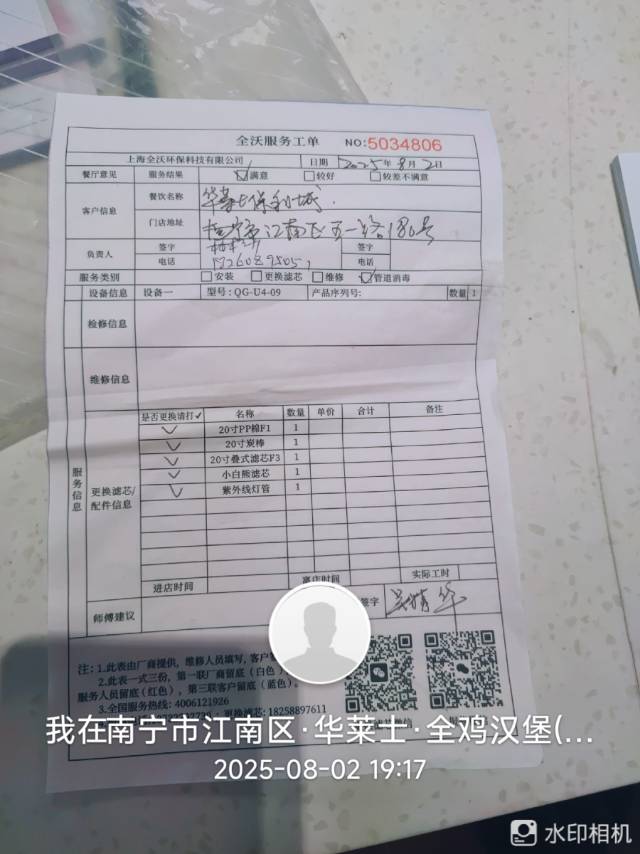 全沃服务工单 NO:5034806
上海全沃环保科技有限公司 日期 2025年8月2日
餐厅意见 服务结果 ☑满意 □较好 □较差不满意
客户信息 餐饮名称 华莱士保利城
门店地址 南宁市江南区五一路186号
负责人 签字 签字
电话 电话
服务类别 □安装 □更换滤芯 □维修 ☑管道消毒
设备信息 设备一 型号:QG-U4-09 产品序列号: 数量 1
检修信息
维修信息
服务信息
更换滤芯/配件信息
是否更换请打✓ 名称 数量 单价 合计 备注
✓ 20寸PP棉F1 1
✓ 20寸炭棒 1
✓ 20寸叠式滤芯F3 1
✓ 小白熊滤芯 1
✓ 紫外线灯管 1
进店时间 离店时间 实际工时
师傅建议 签字
注：1.此表由厂商提供，维修人员填写，客户
2.此表一式三份，第一联厂商留底（白色
服务人员留底(红色)，第三联客户留底（蓝色）。
3.全国服务热线: 4006121926
更换滤芯: 18258897611
我在南宁市江南区·华莱士·全鸡汉堡(...
2025-08-02 19:17
水印相机